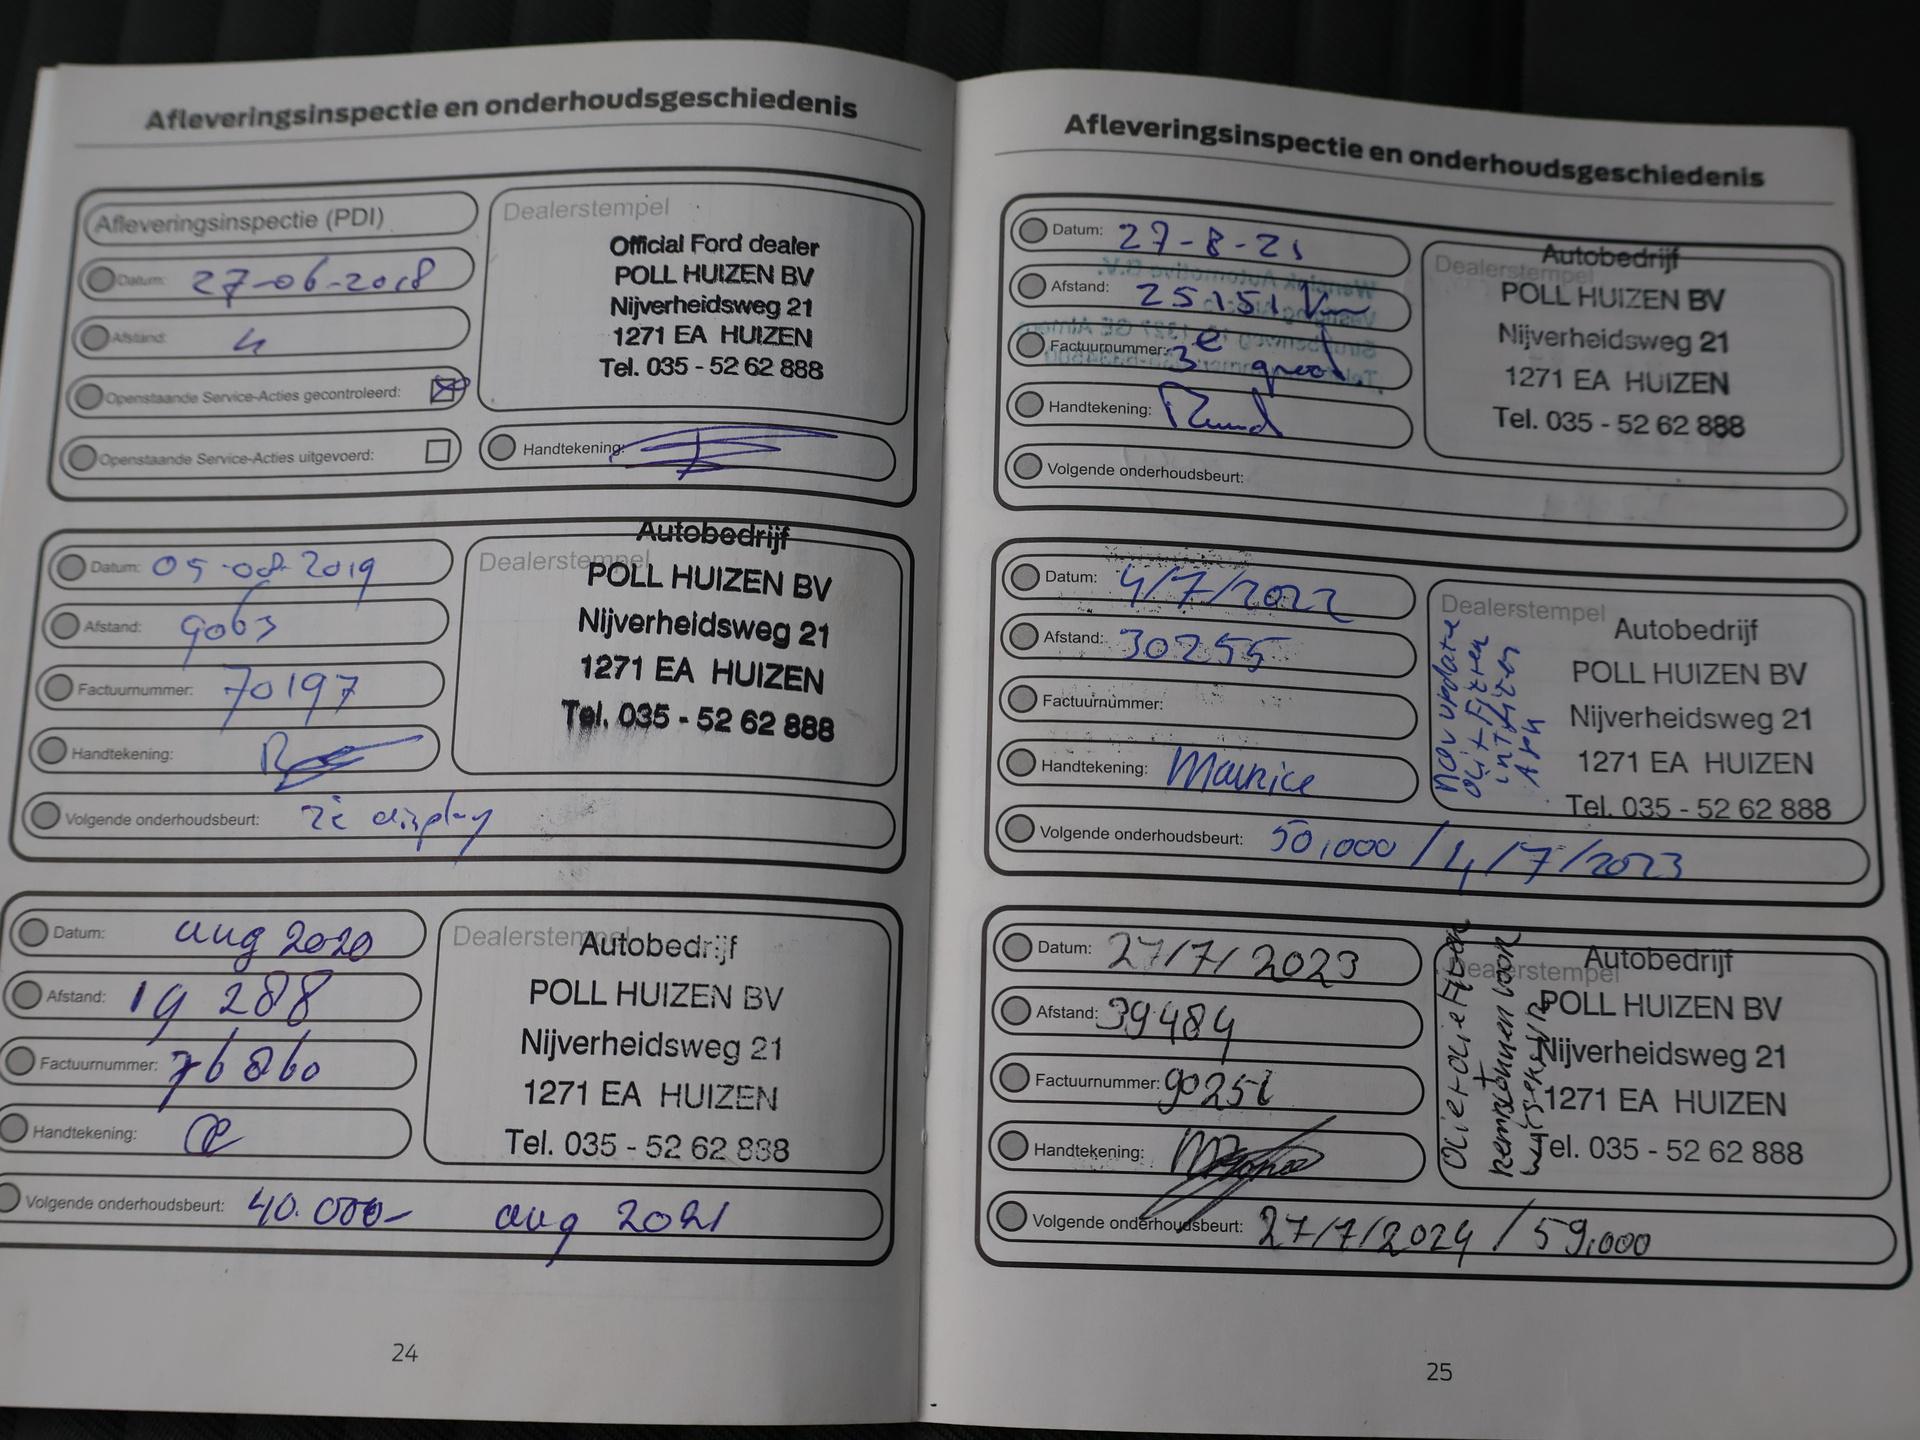 Afleveringsinspectie en onderhoudsgeschiedenis
Afleveringsinspectie (PDI)
Datum: 27-06-2018
Afstand: 4
Openstaande Service-Acties gecontroleerd:
Openstaande Service-Acties uitgevoerd:
Dealerstempel
Official Ford dealer
POLL HUIZEN BV
Nijverheidsweg 21
1271 EA HUIZEN
Tel. 035 - 52 62 888
Handtekening:
Datum: 05-08-2019
Afstand: 9063
Factuurnummer: 70197
Handtekening:
Dealerstempel
Autobedrijf
POLL HUIZEN BV
Nijverheidsweg 21
1271 EA HUIZEN
Tel. 035 - 52 62 888
Volgende onderhoudsbeurt: zie display
Datum: aug 2020
Afstand: 19 288
Factuurnummer: 76860
Handtekening:
Dealerstempel
Autobedrijf
POLL HUIZEN BV
Nijverheidsweg 21
1271 EA HUIZEN
Tel. 035 - 52 62 888
Volgende onderhoudsbeurt: 40.000- aug 2021
24
Afleveringsinspectie en onderhoudsgeschiedenis
Datum: 27-8-21
Afstand: 25151 Km
Factuurnummer: 3e
Handtekening: Ruud
Dealerstempel
Autobedrijf
POLL HUIZEN BV
Nijverheidsweg 21
1271 EA HUIZEN
Tel. 035 - 52 62 888
Volgende onderhoudsbeurt:
Datum: 4/7/2022
Afstand: 30255
Factuurnummer:
Handtekening: Maurice
Dealerstempel
nav update
olie + Filter
int filter
APK
Autobedrijf
POLL HUIZEN BV
Nijverheidsweg 21
1271 EA HUIZEN
Tel. 035 - 52 62 888
Volgende onderhoudsbeurt: 50,000 / 4/7/2023
Datum: 27/7/2023
Afstand: 39484
Factuurnummer: 90251
Handtekening:
Dealerstempel
olie + olie Filter
+ remschijven voor
Autobedrijf
POLL HUIZEN BV
Nijverheidsweg 21
1271 EA HUIZEN
Tel. 035 - 52 62 888
Volgende onderhoudsbeurt: 27/7/2024 / 59,000
25